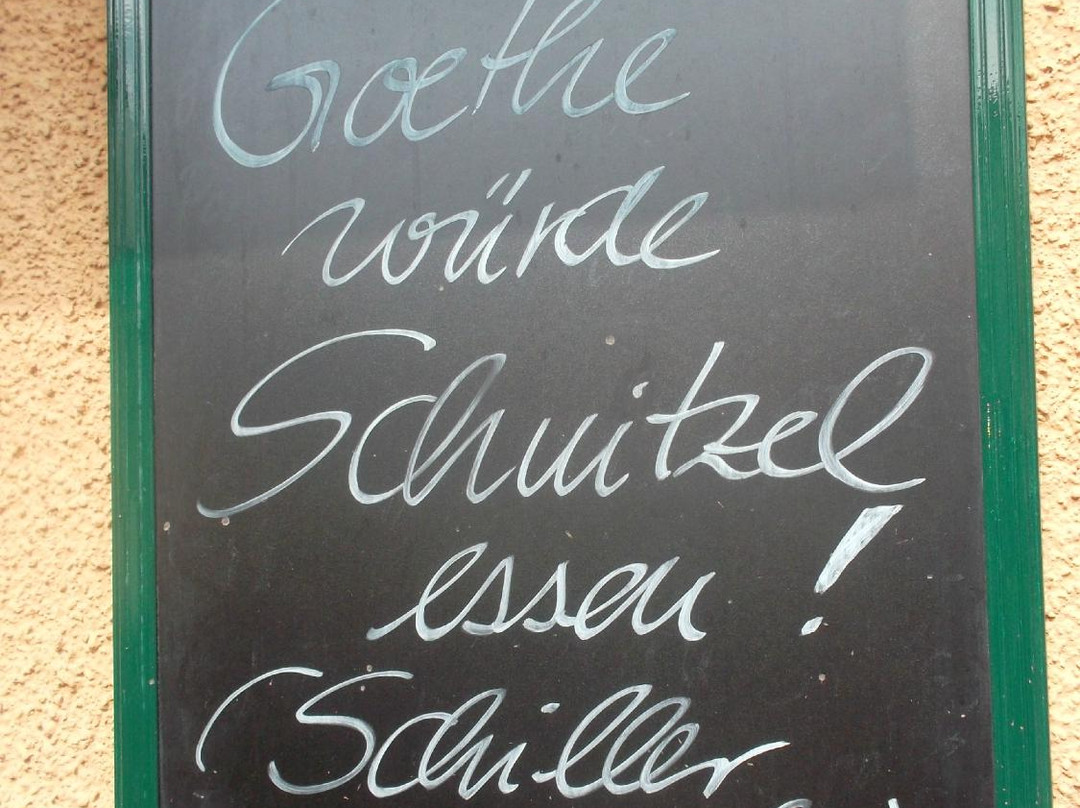 Goethe
würde
Schnitzel
essen!
(Schiller